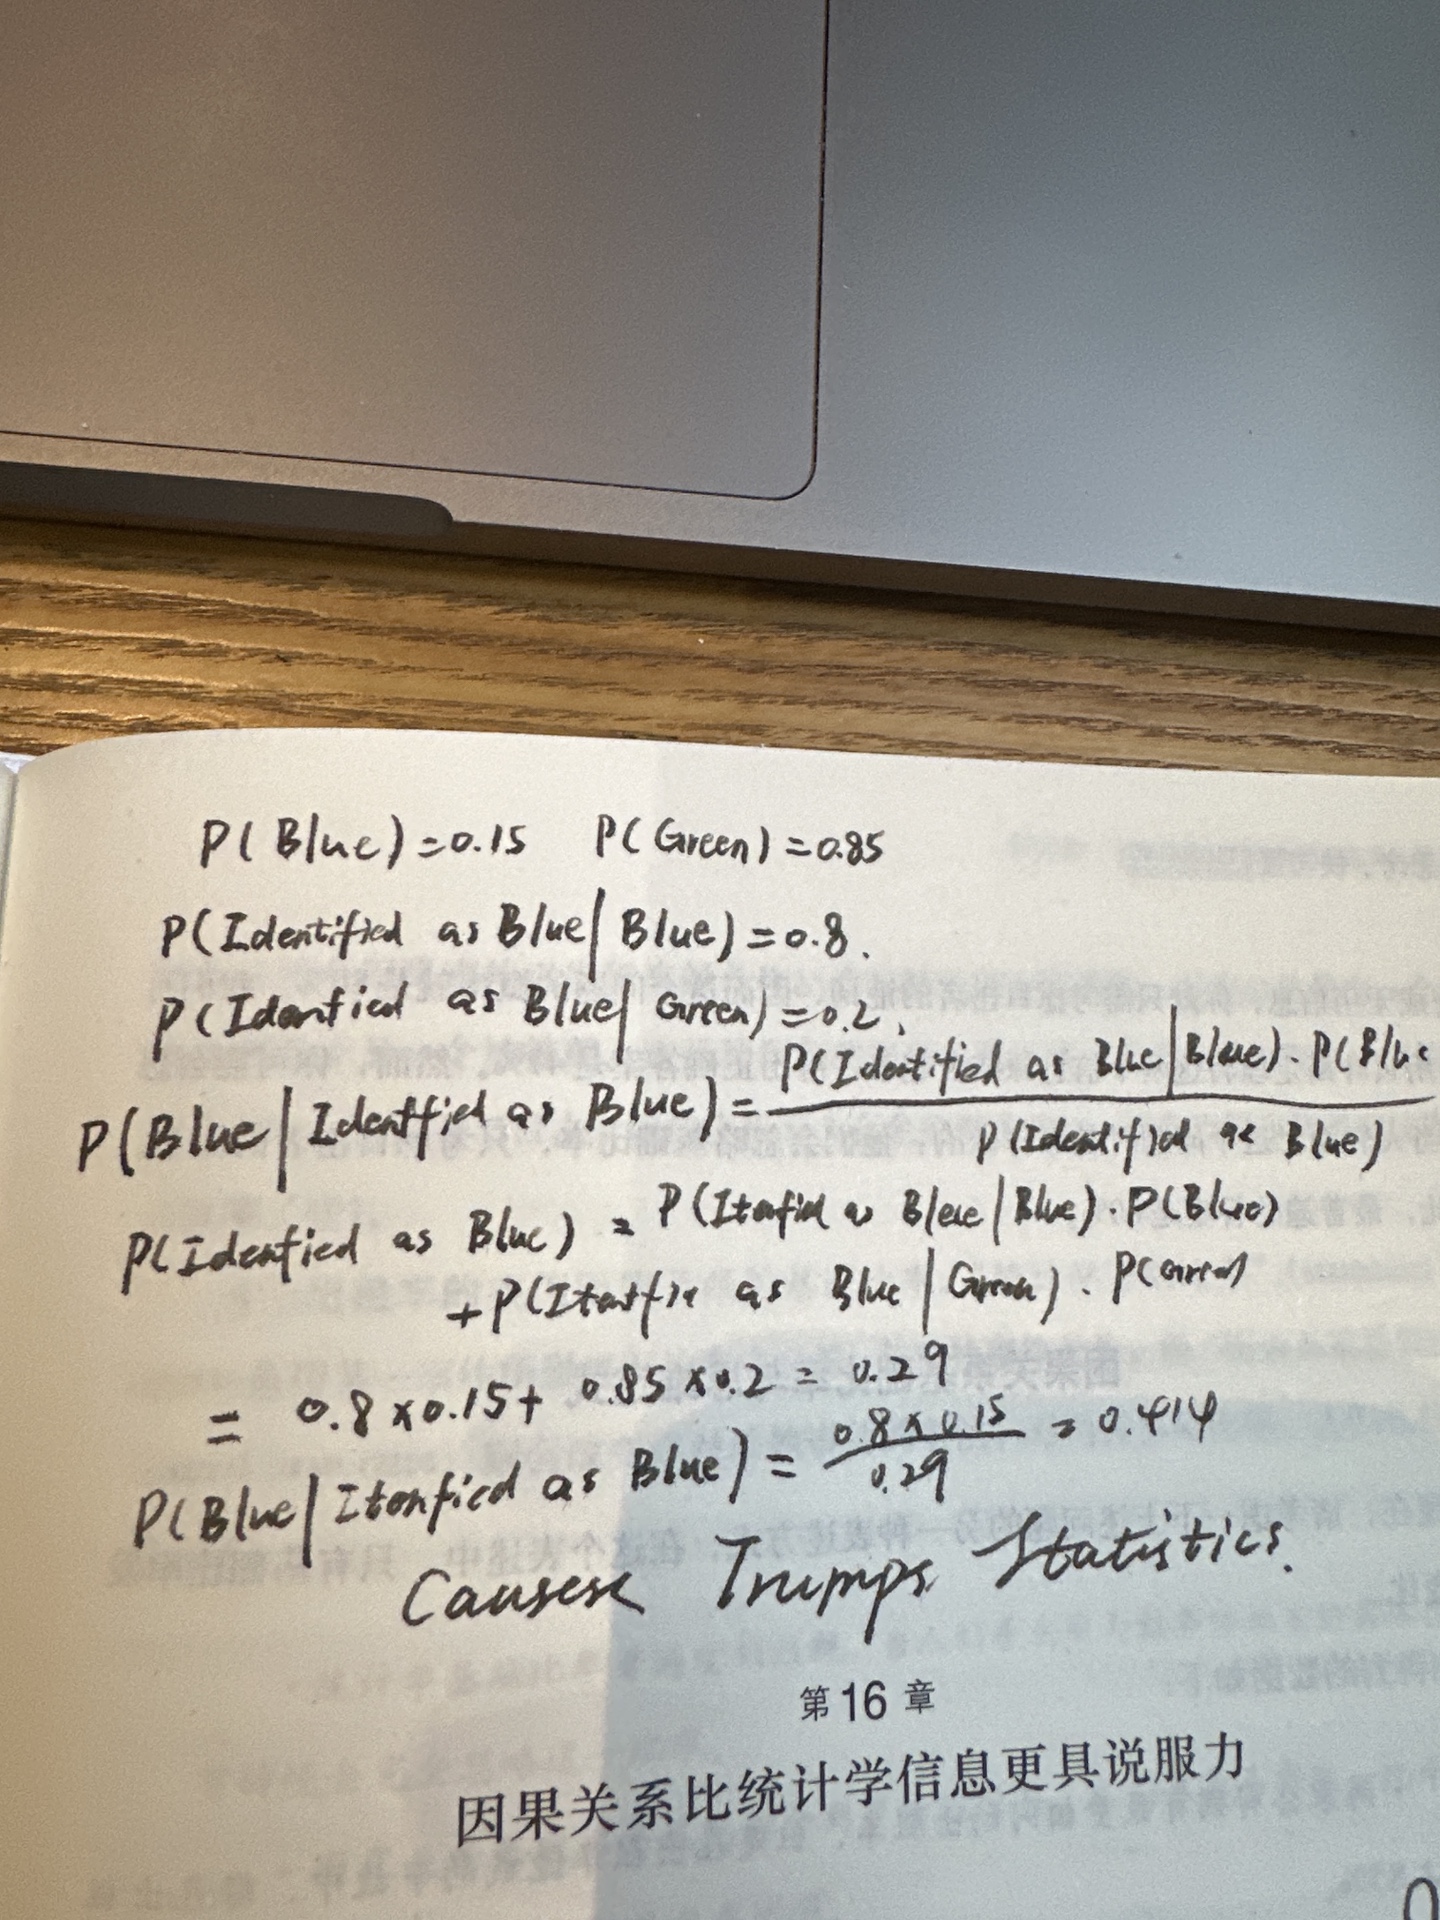 P(Blue)=0.15 P(Green)=0.85
P(Identified as Blue|Blue)=0.8.
P(Identified as Blue|Green)=0.2.
P(Blue|Identified as Blue)=P(Identified as Blue|Blue).P(Blue
P(Identified as Blue)
P(Idenfied as Blue) = P( as Blue|Blue).P(Blue)
+P( as Blue|Green).P(Green)
= 0.8×0.15+ 0.85×0.2 = 0.29
P(Blue| as Blue) = 0.8×0.15 = 0.414
0.29
Causes Trumps Statistics.
第16章
因果关系比统计学信息更具说服力